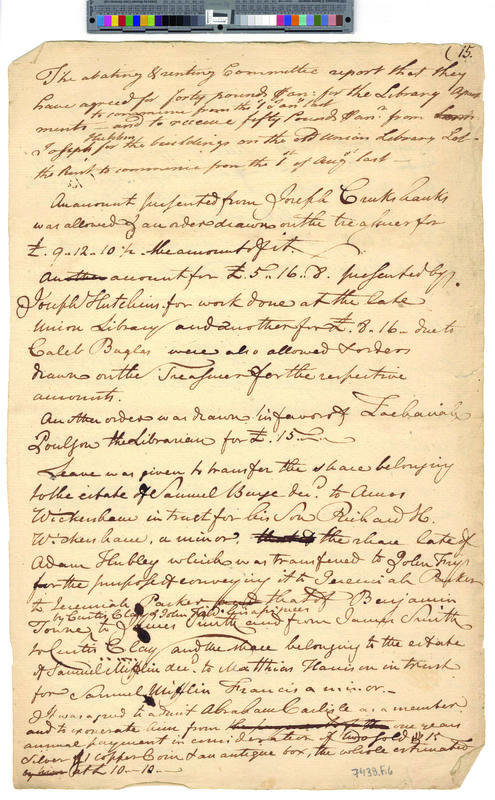 (15.
The abating & renting Committee report that they
have agreed for forty pounds ⅌ an: for the Library Apart
to commence from the 1st Jany last
ments — and to receive fifty Pounds ⅌ ann from
Stephen
Joseph for the buildings on the old Union Library Lot
the Rent to commence from the 1st of Augt last —
An amount presented from Joseph Crukshank
was allowed & an order drawn on the treasurer for
£. 9..12..10½ the amount of it
Another account for £.5..16..8. presented by
Joseph Hutchins, for work done at the late
Union Library and another for £.8.16— due to
Caleb Bagles were also allowed & orders
drawn on the Treasurer for the respective
accounts.
Another order was drawn in favor of Zachariah
Poulson the Librarian for £.15..
Leave was given to transfer the share belonging
to the estate of Samuel Burge decd. to Amos
Wickersham in trust for his Son Richard H.
Wickersham, a minor, the share late of
Adam Hubley which was transferred to John Fry
for the purpose of conveying it to Jeremiah Parker
to Jeremiah Parker that of Benjamin
by Curtis Clay & John Field his assignees
Towne to James Smith and from James Smith
to Curtis Clay and the share belonging to the estate
of Samuel Mifflin decd. to Matthias Harrison in trust
for Samuel Mifflin Francis a minor.—
It was agreed to admit Abraham Carlisle as a member
and to exonerate him from one years
annual payment in consideration of two Gold 15
Silver & 1 Copper Coin & an antique box, the whole estimated
at £10..10..
7438.F.6